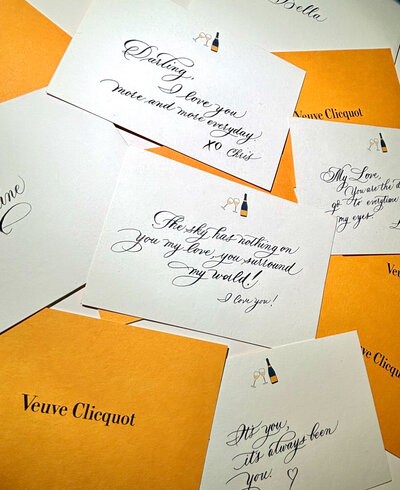 Bella
Darling,
I love you
more and more everyday
XO Chris
Veuve Clicquot
My Love,
You are the
go to everytime
my eyes.
The sky has nothing on
you my love, you surround
my world!
I love you!
Veuve Clicquot
Clicquot
It's you,
it's always been
you.